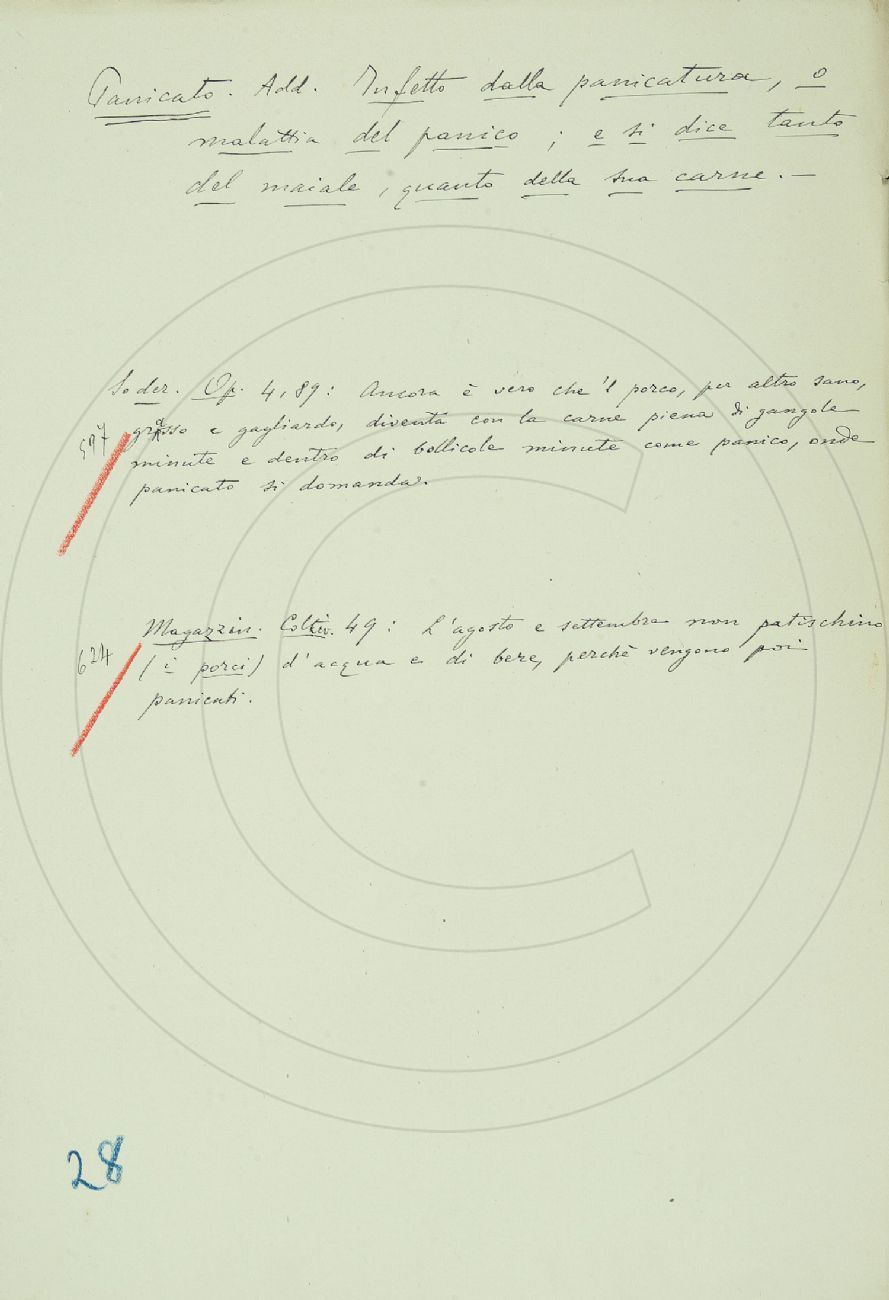 Panicato. Add. Infetto dalla panicatura, o
malattia del panico; e si dice tanto
del maiale, quanto della sua carne. —
Soder. Op. 4, 89: Ancora è vero che 'l porco, per altro sano,
597 grasso e gagliardo, diventa con la carne piena di gangole
minute e dentro di bollicole minute come panico, onde
panicato si domanda.
Magazzin. Coltiv. 49: L'agosto e settembre non patischino
624 (i porci) d'acqua e di bere, perchè vengono poi
panicati.
28